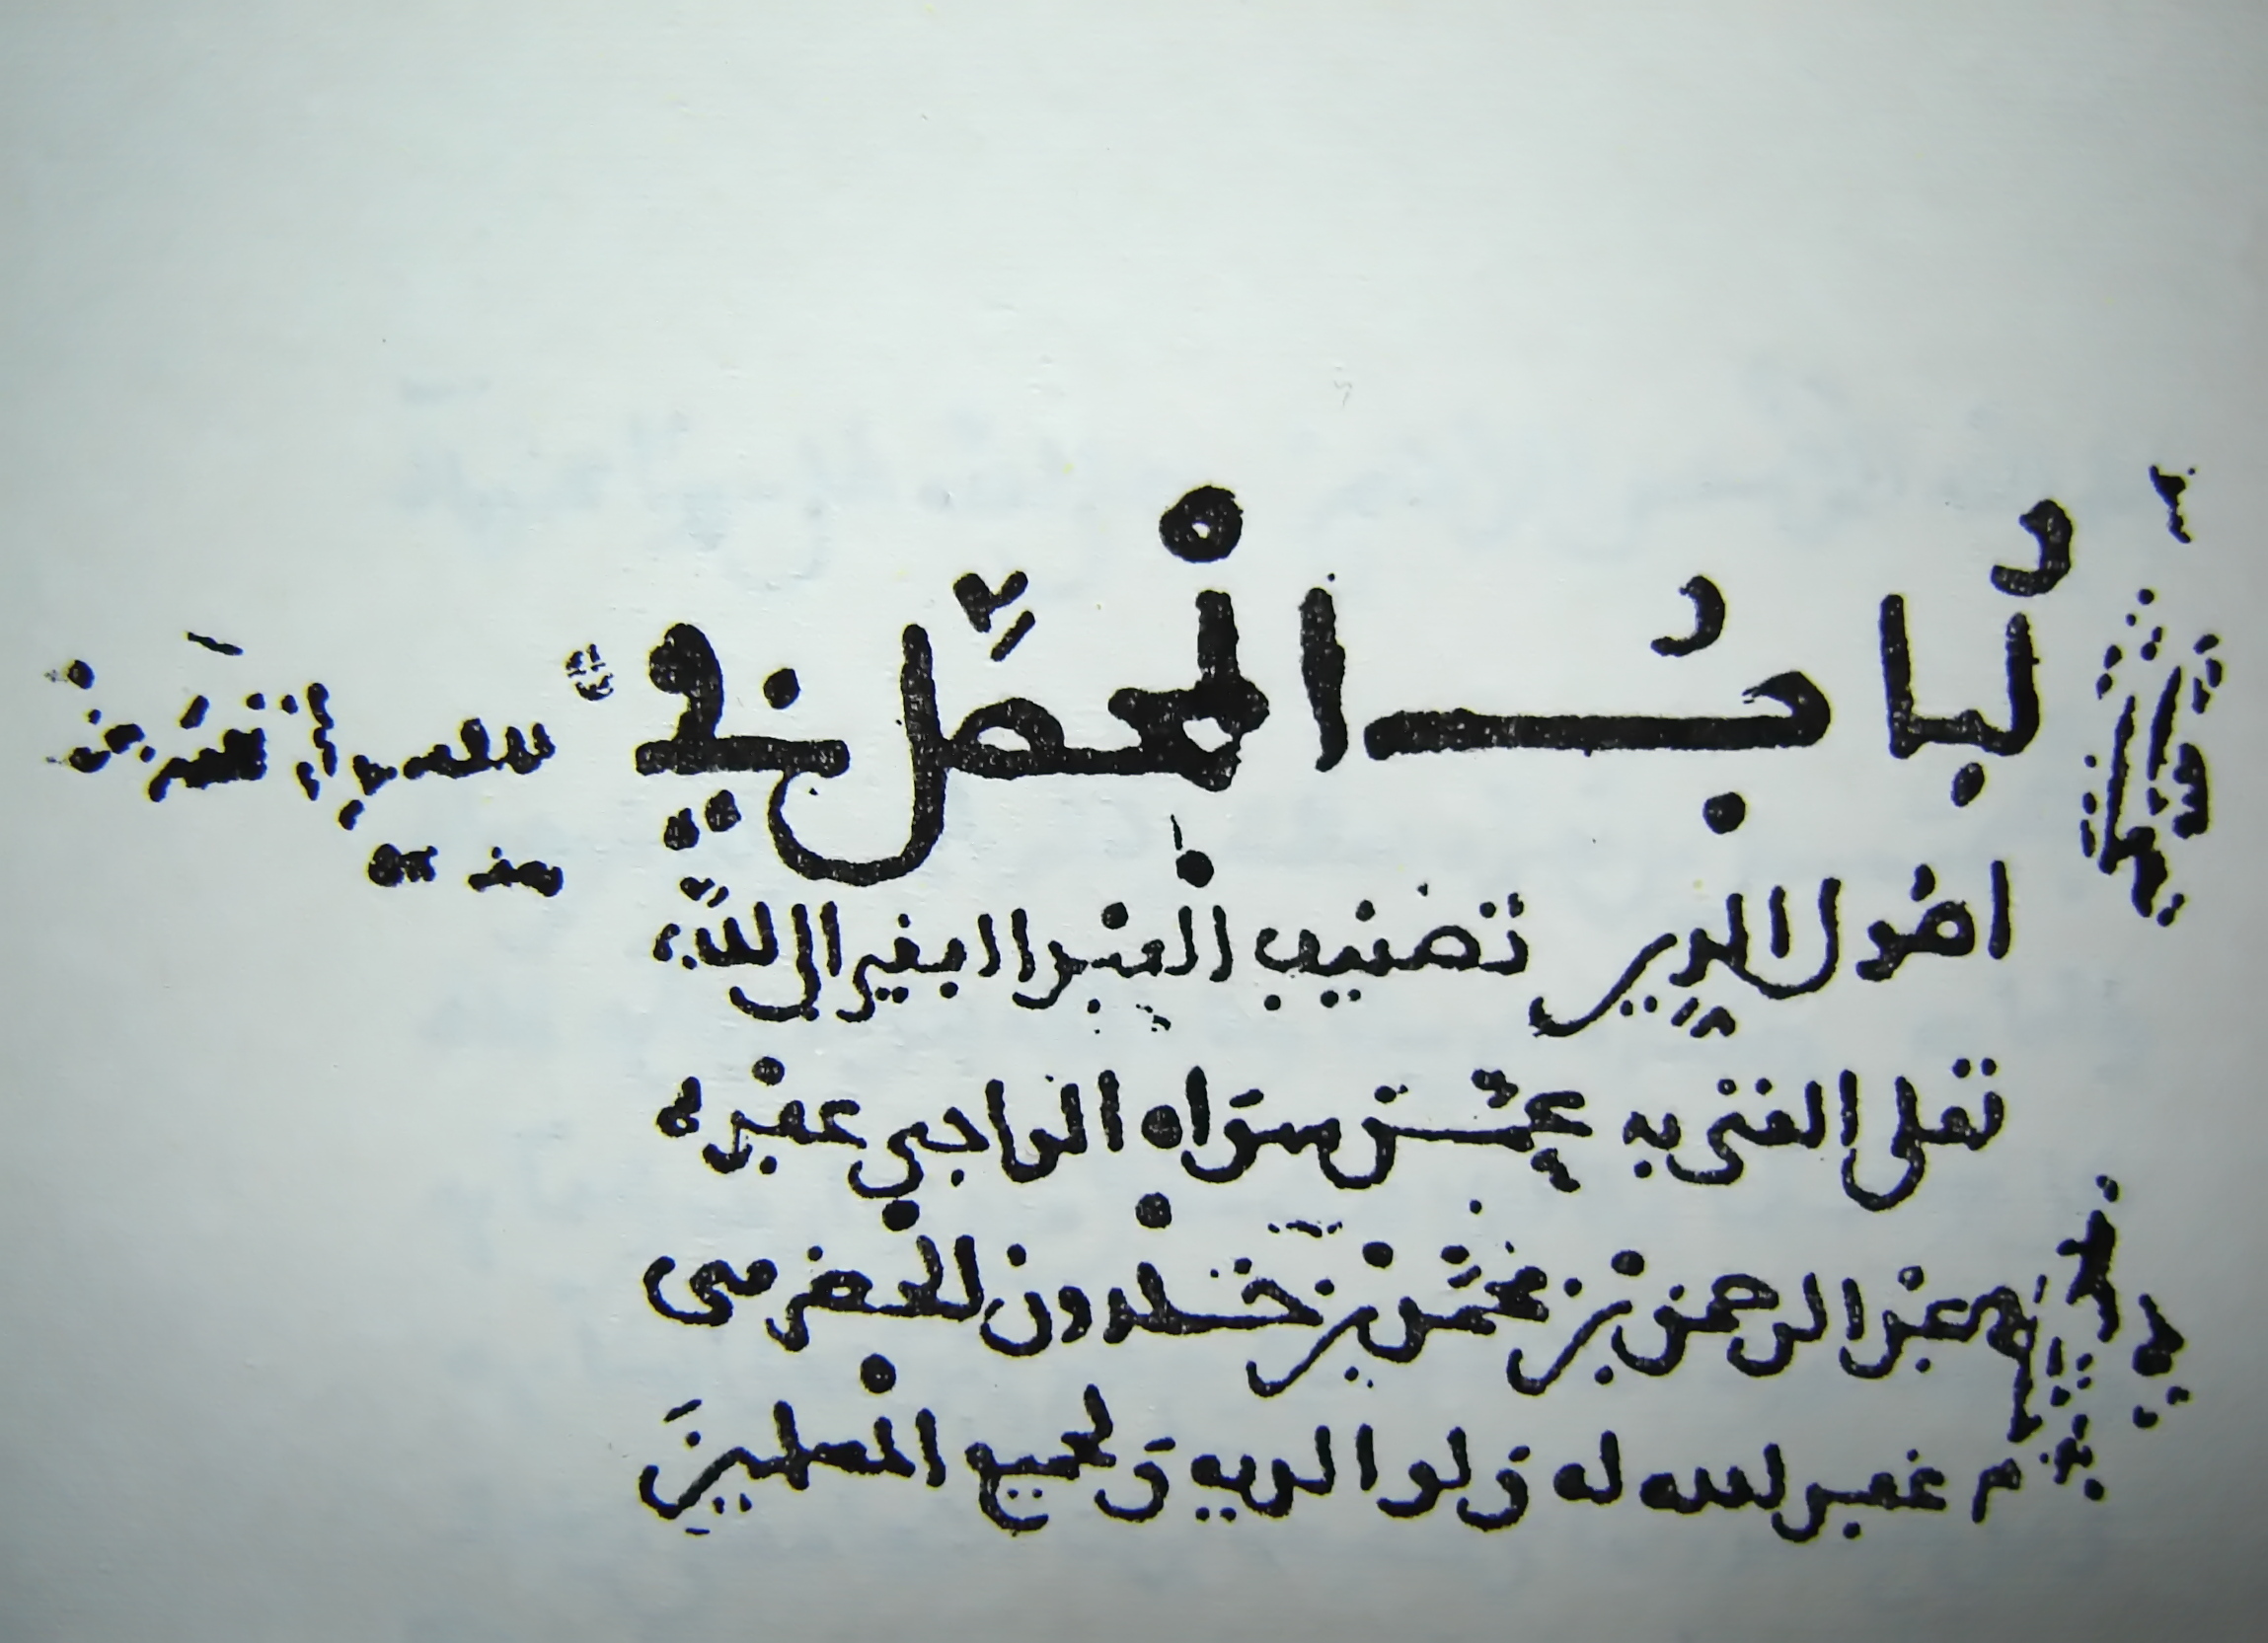 لُبابُ المحصّل في
اصُول الدين تصنيف العبد الفقير الى اللّه
تعلى الغني به عمّن سوَاه الراجي عفوه
عبد الرحمن بن محمّد بن خلدون الحضرمى
غفر الله له وَلوالديه وَلجميع المسلمينَ